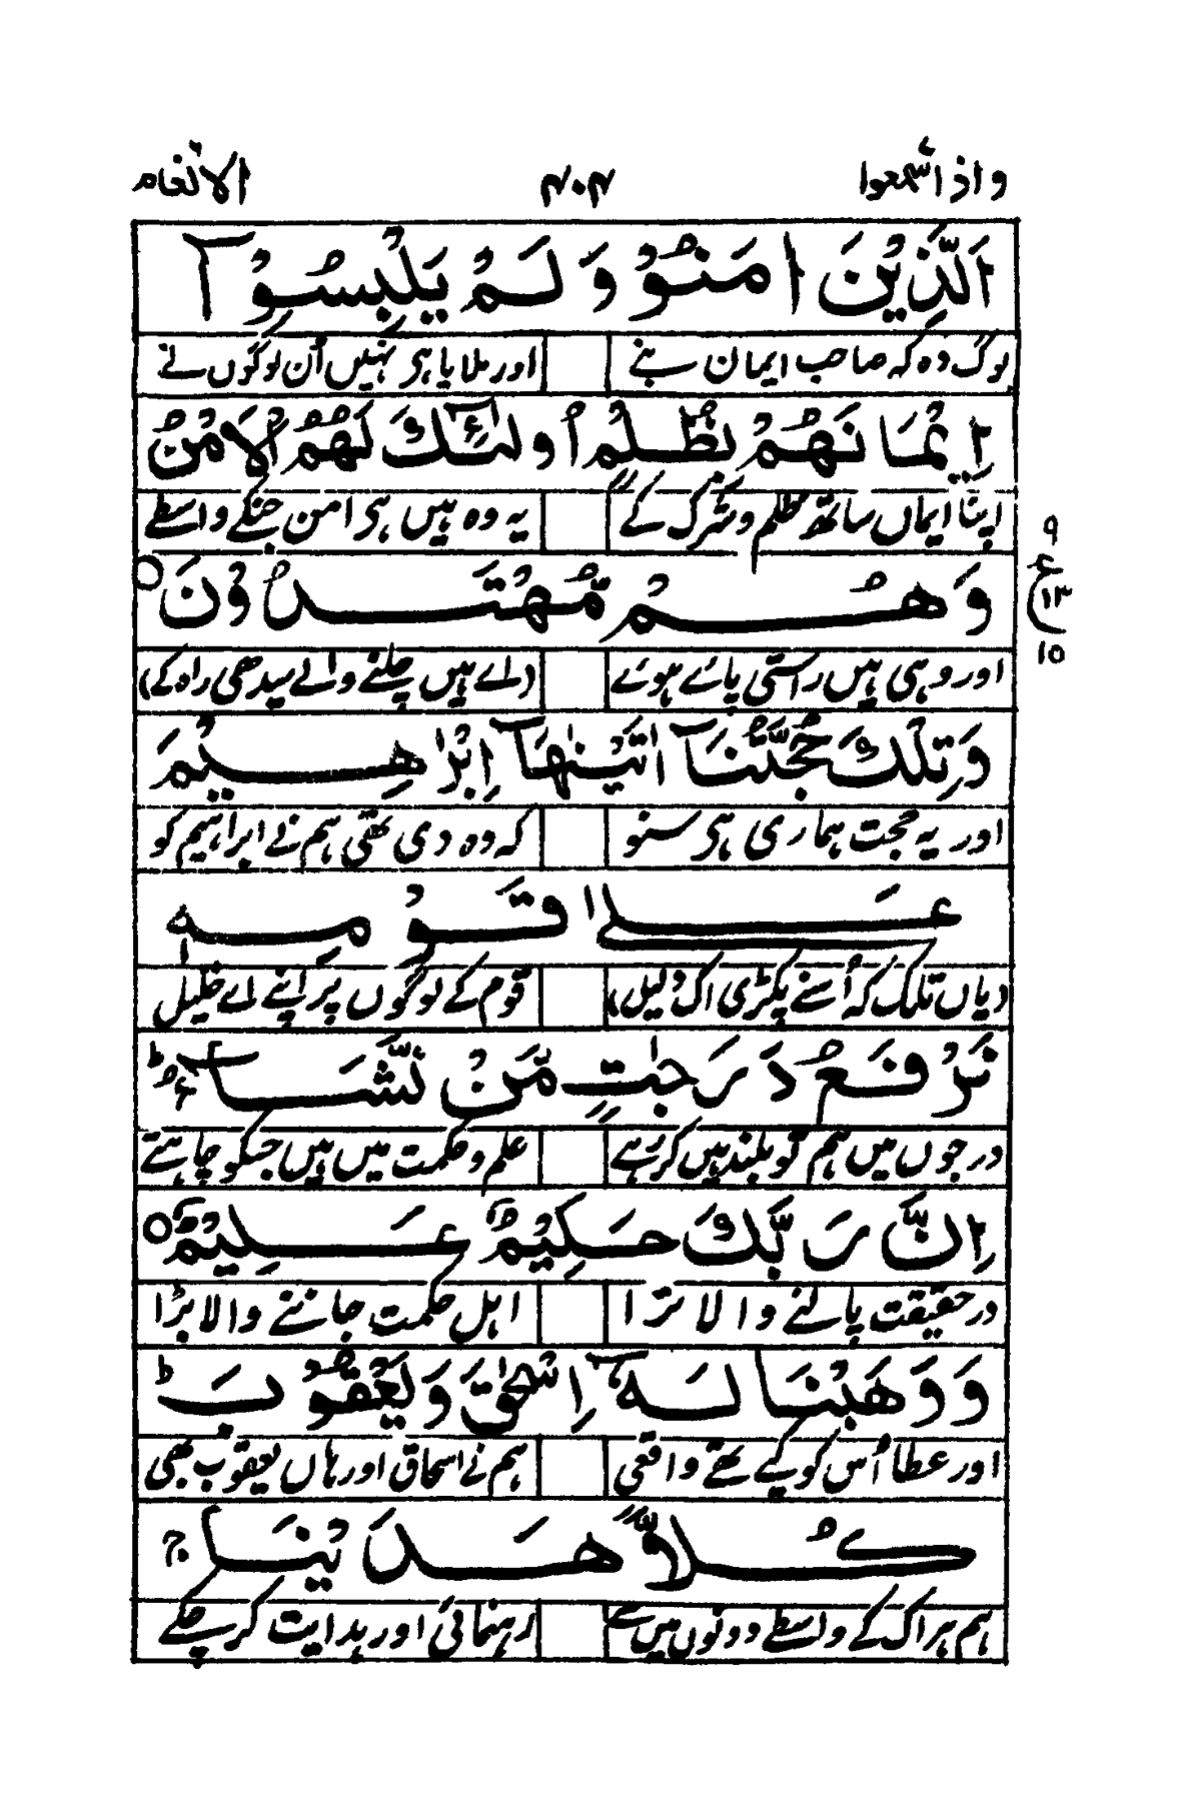 واذاسمعوا ۴۰۴ الانعام
اَلَّذِيْنَ اٰمَنُوْا وَلَمْ يَلْبِسُوْٓا
لوگ وہ کہ صاحب ایمان بنے اور ملایا ہی نہیں اُن لوگوں نے
اِيْمَانَهُمْ بِظُلْمٍ اُولٰٓئِكَ لَهُمُ الْاَمْنُ
اپنا ایماں ساتھ ظلم و شرک کے یہ وہ ہیں ہی امن جنکے واسطے
وَهُمْ مُّهْتَدُوْنَ ○
اور وہی ہیں راستی پائے ہوئے (اے ہیں چلنے والے سیدھی راہ کے)
۹
ع
۱۳
۱۵
وَتِلْكَ حُجَّتُنَآ اٰتَيْنٰهَآ اِبْرٰهِيْمَ
اور یہ حجت ہماری ہی سنو کہ وہ دی تھی ہم نے ابراہیم کو
عَلٰى قَوْمِهٖ
(یاں تلک کہ اُسنے پکڑی اک دلیل) قوم کے لوگوں پر اپنے اے خلیل
نَرْفَعُ دَرَجٰتٍ مَّنْ نَّشَآءُ ط
درجوں میں ہم تو بلند ہیں کر رہے علم و حکمت میں ہیں جسکو چاہتے
اِنَّ رَبَّكَ حَكِيْمٌ عَلِيْمٌ ○
در حقیقت پالنے والا ترا اہل حکمت جاننے والا بڑا
وَوَهَبْنَا لَهٗٓ اِسْحٰقَ وَيَعْقُوْبَ ط
اور عطا اُس کو کیے تھے واقعی ہم نے اسحاق اور ہاں یعقوب بھی
كُلًّا هَدَيْنَا ج
ہم ہر اک کے واسطے دونوں میں سے رہنمائی اور ہدایت کر چکے